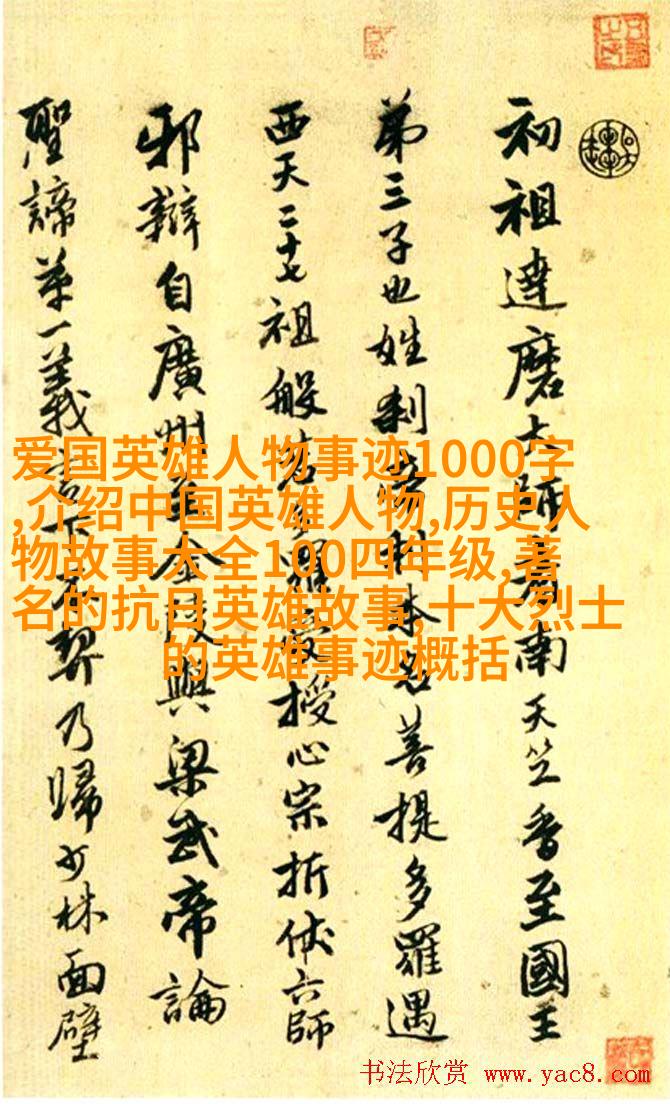 初祖達磨大師者南天竺香至國王
苐三子也姓刹利本名菩提多羅遇
西天二十七祖般若多羅授心宗折伏六師
邪辯自廣州至金陵與梁武帝論
聖諦苐一義不契乃歸少林面壁
爱国英雄人物事迹1000字
,介绍中国英雄人物,历史人
物故事大全100四年级,著
名的抗日英雄故事,十大烈士
的英雄事迹概括
书法欣赏 www.yac8.com